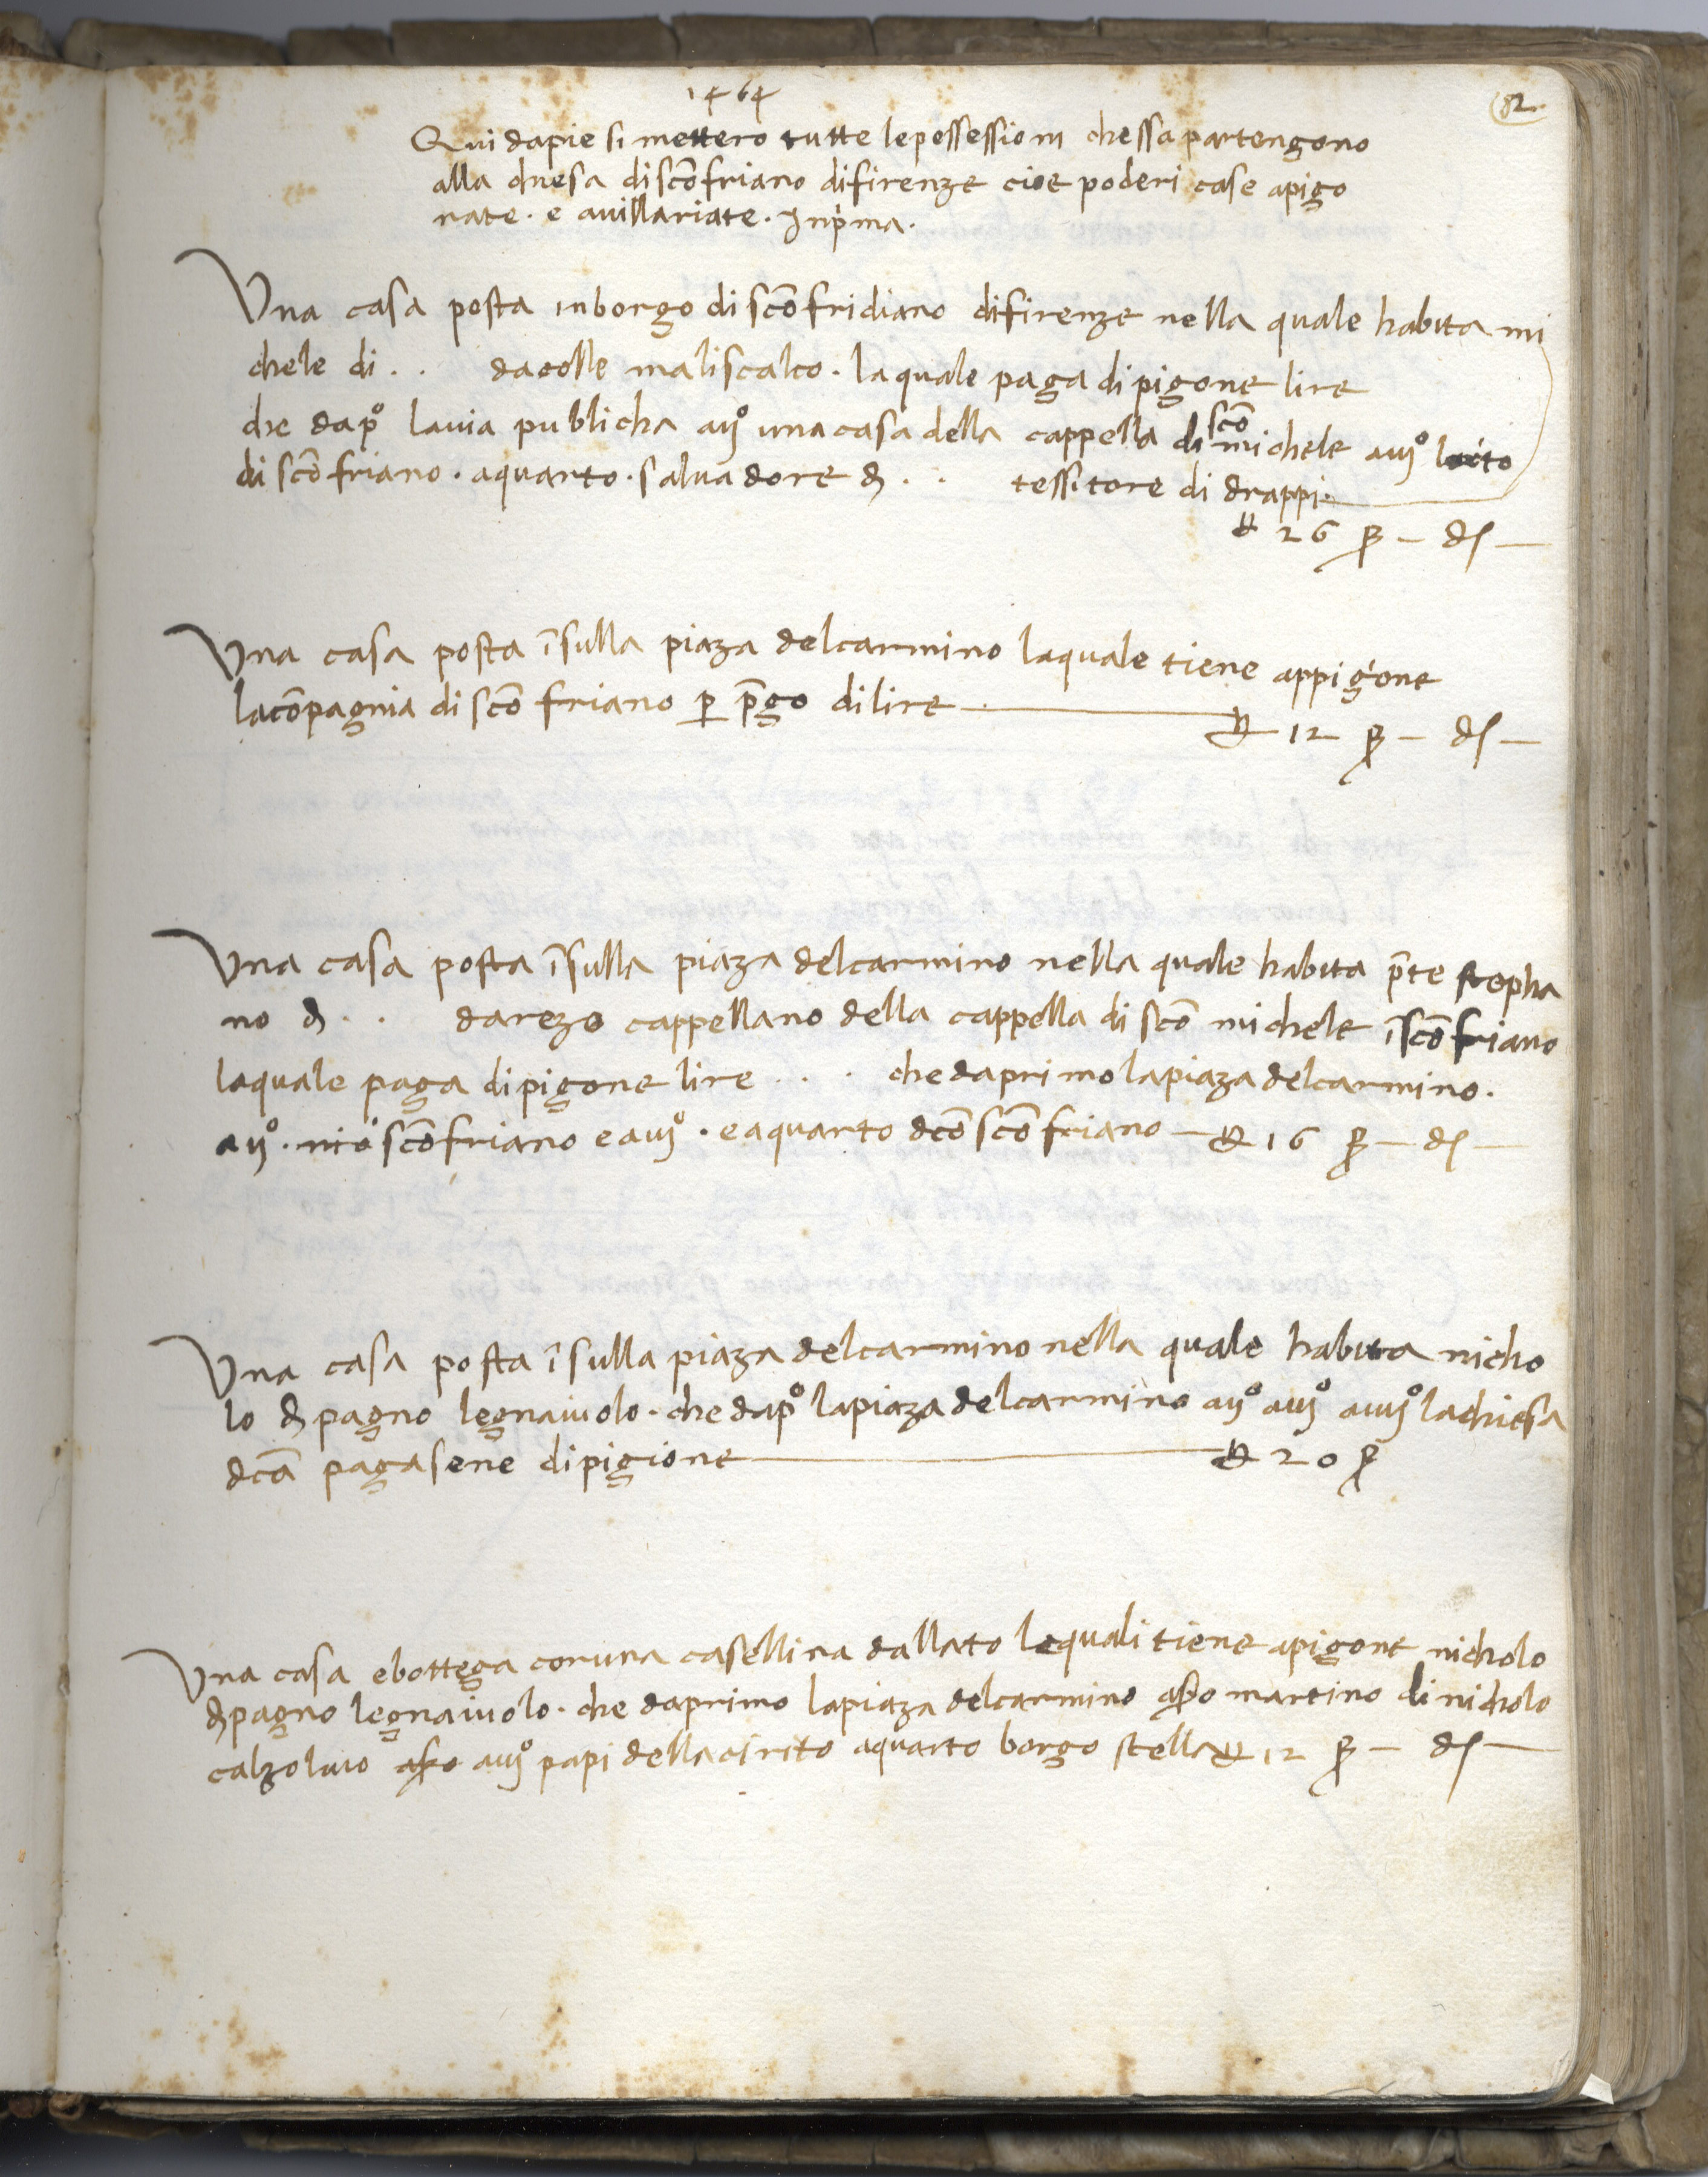 1464
82
Qui dapie si mettero tutte le possessioni chessapartengono
alla chiesa di sc̃o friano di firenze cioe poderi case apigo
nate · e auillariate · Inp̃ma ·
Vna casa posta inborgo di sc̃o fridiano difirenze nella quale habita mi
chele di . . dacolle maliscalco · la quale paga di pigone lire
che dapº lauia publicha aijº una casa della cappella di sc̃o michele aiijº
di sc̃o friano · aquarto · saluadore d . . tessitore di drappi
26 — —
Vna casa posta ĩsulla piaza delcarmino laquale tiene appigone
lacõpagnia di sc̃o friano p p̃go di lire 12 — —
Vna casa posta ĩsulla piaza delcarmino nella quale habita p̃te stepha
no d . . darezo cappellano della cappella di sc̃o michele ĩsc̃o friano
laquale paga dipigone lire . . . che daprimo lapiaza delcarmino ·
aijº · sc̃o friano e aiijº · eaquarto dc̃o sc̃o friano — 16 — —
Vna casa posta ĩsulla piaza delcarmino nella quale habita nicho
lo d pagno legnaiuolo · che dapº lapiaza delcarmino aijº aiijº aiiijº lachiesa
dc̃a pagasene dipigione 20
Vna casa ebottega conuna casellina dallato lequali tiene apigone nicholo
dpagno legnaiuolo · che daprimo lapiaza delcarmino martino di nicholo
calzolaio aiijº papi della aquarto borgo stella 12 — —